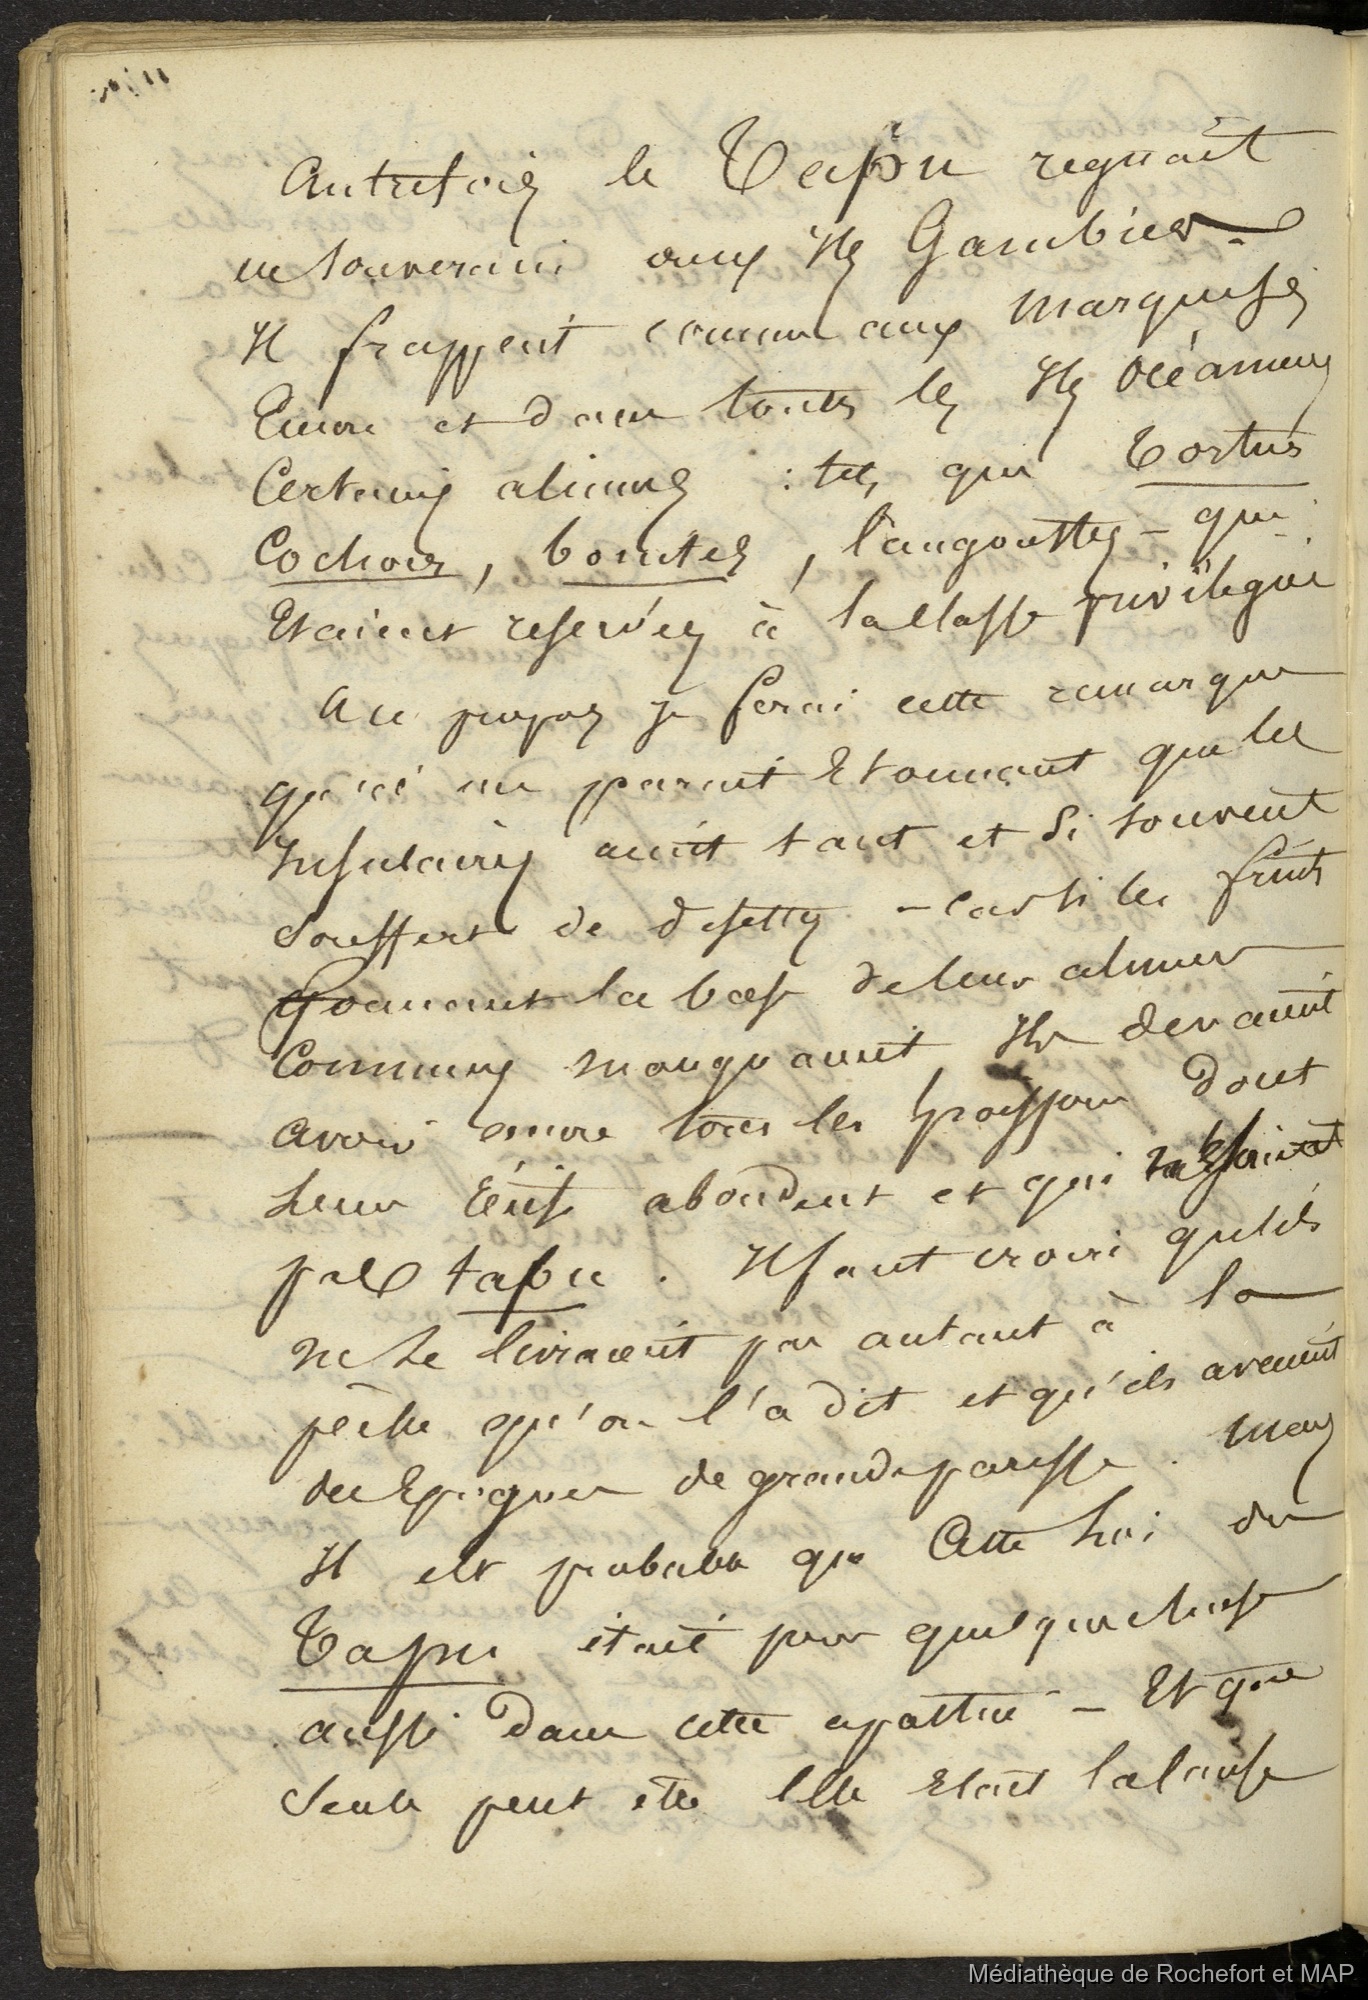 Autrefois le Tapu regnait
en souverain aux Iles Gambier -
Il frappait comme aux Marquises
Encore et dans toutes les Iles océaniennes
Certains aliments : tels que Tortues
Cochons, bonites, langoustes - qui
Etaient reservées à la classe privilegiée
A ce propos je ferai cette remarque
qu'il me parait Etonnant que les
Insulaires aient tant et si souvent
souffert de disettes - car si les fruits
formant la base de leurs aliments
Communs manquaient, Ils devaient
avoir encore tous les poissons dont
leurs récifs abondent et qui
pas tapu. Il faut croire qu'ils
ne se livraient pas autant à la
pêche qu'on l'a dit et qu'ils avaient
des Epoques de grande paresse. Mais
Il est probable que Cette Loi du
Tapu était pour quelque chose
aussi dans cette apathie - Et que
seule peut être Elle Etait la cause
Médiathèque de Rochefort et MAP